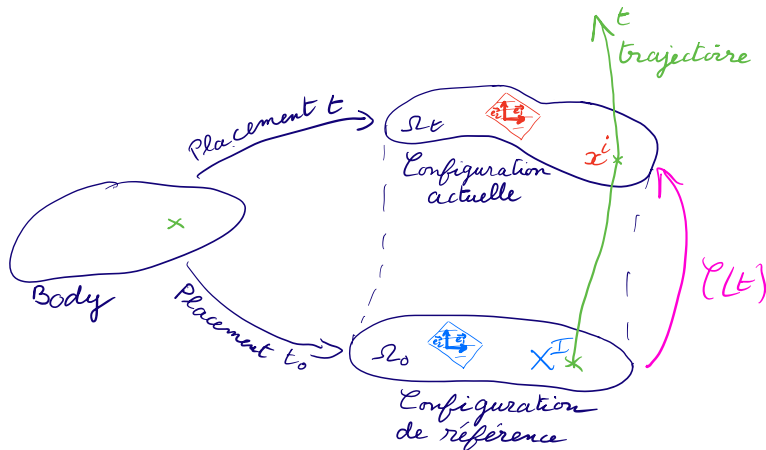 t
trajectoire
Placement t
Ωt
xⁱ
Configuration
actuelle
Body
Placement t₀
Ω₀
Xᴵ
Configuration
de référence
φ(t)